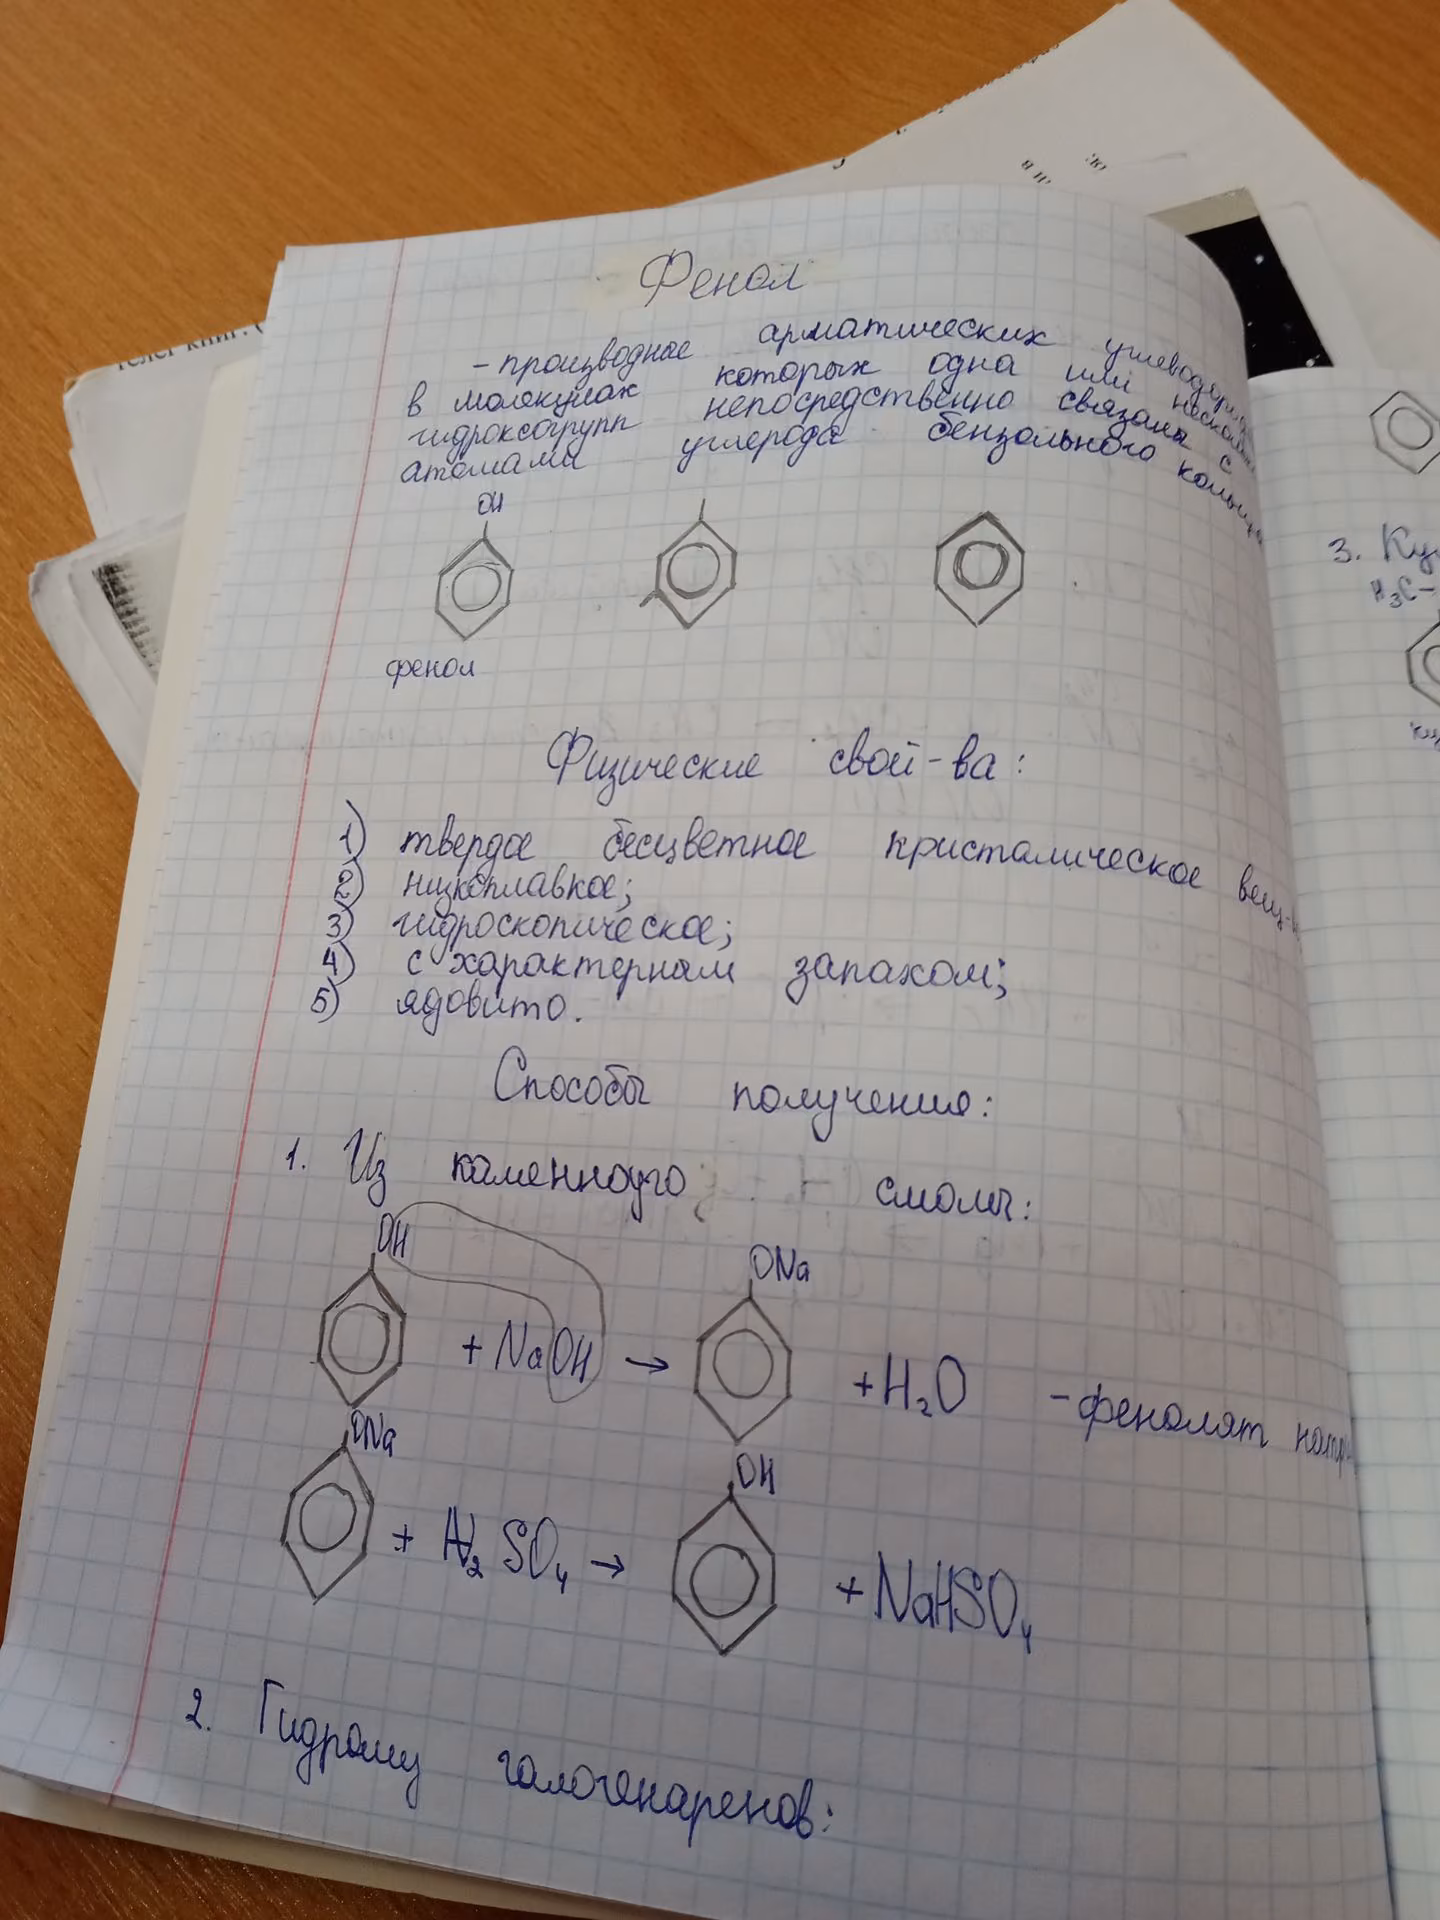 Фенол
- производное арматических углеводород
в молекулах которых одна или несколь
гидроксогрупп непосредственно связаны с
атомами углерода бензольного кольца
OH
фенол
Физические свой-ва:
1) твердое бесцветное кристалическое вещ-
2) низкоплавкое;
3) гидроскопическое;
4) с характерным запахом;
5) ядовито.
Способы получения:
1. Из каменноуго смолы:
OH
+ NaOH → ONa + H₂O - фенолят натри
ONa
+ H₂SO₄ → OH + NaHSO₄
2. Гидролиу галогенаренов:
3. Ку
H₃C-
ку